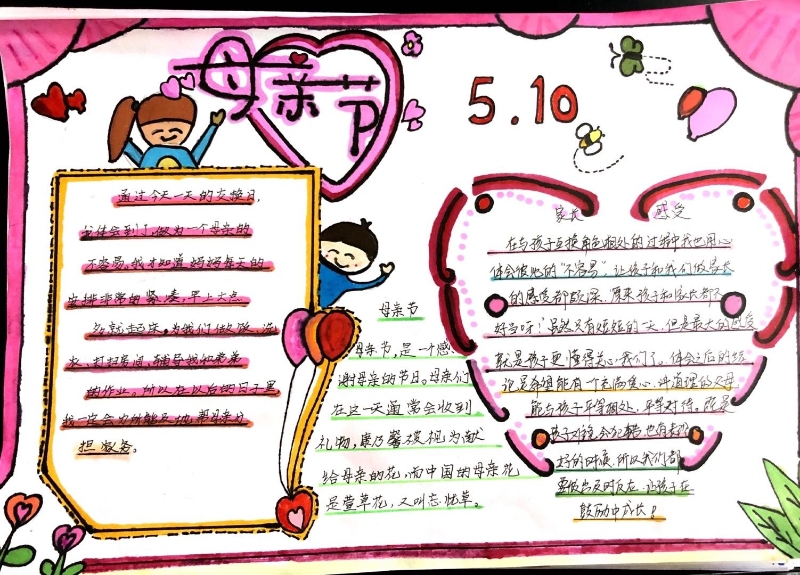 母亲节
5.10
通过今天一天的交换日,
我体会到了做为一个母亲的
不容易,我才知道妈妈每天的
安排非常的紧凑,早上六点
多就起床,为我们做饭、洗
衣、打扫房间、辅导我和弟弟
的作业。所以在以后的日子里
我一定会力所能及地,帮母亲分
担家务。
母亲节
母亲节,是一个感
谢母亲的节日。母亲们
在这一天通常会收到
礼物,康乃馨被视为献
给母亲的花,而中国的母亲花
是萱草花,又叫忘忧草。
家长 感受
在与孩子互换角色相处的过程中我也用心
体会彼此的“不容易”,让孩子和我们做家长
的感受都颇深。原来孩子和家长都不
好当呀!虽然只有短短的一天,但是最大的感受
就是孩子更懂得关心我们了。体会之后的结
论是希望能有一个充满爱心、讲道理的父母
能与孩子平等相处,平等对待。既是
孩子难免会犯错也有做
好的时候,所以我们都
要做出及时反应,让孩子在
鼓励中成长!